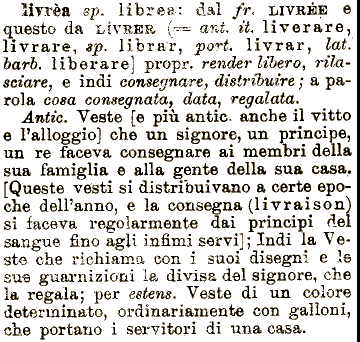 livrèa sp. librea: dal fr. LIVRÉE e
questo da LIVRER (= ant. it. liverare,
livrare, sp. librar, port. livrar, lat.
barb. liberare] propr. render libero, rila-
sciare, e indi consegnare, distribuire; a pa-
rola cosa consegnata, data, regalata.
Antic. Veste [e più antic. anche il vitto
e l'alloggio] che un signore, un principe,
un re faceva consegnare ai membri della
sua famiglia e alla gente della sua casa.
[Queste vesti si distribuivano a certe epo-
che dell'anno, e la consegna (livraison)
si faceva regolarmente dai principi del
sangue fino agli infimi servi]; Indi la Ve-
ste che richiama con i suoi disegni e le
sue guarnizioni la divisa del signore, che
la regala; per estens. Veste di un colore
determinato, ordinariamente con galloni,
che portano i servitori di una casa.